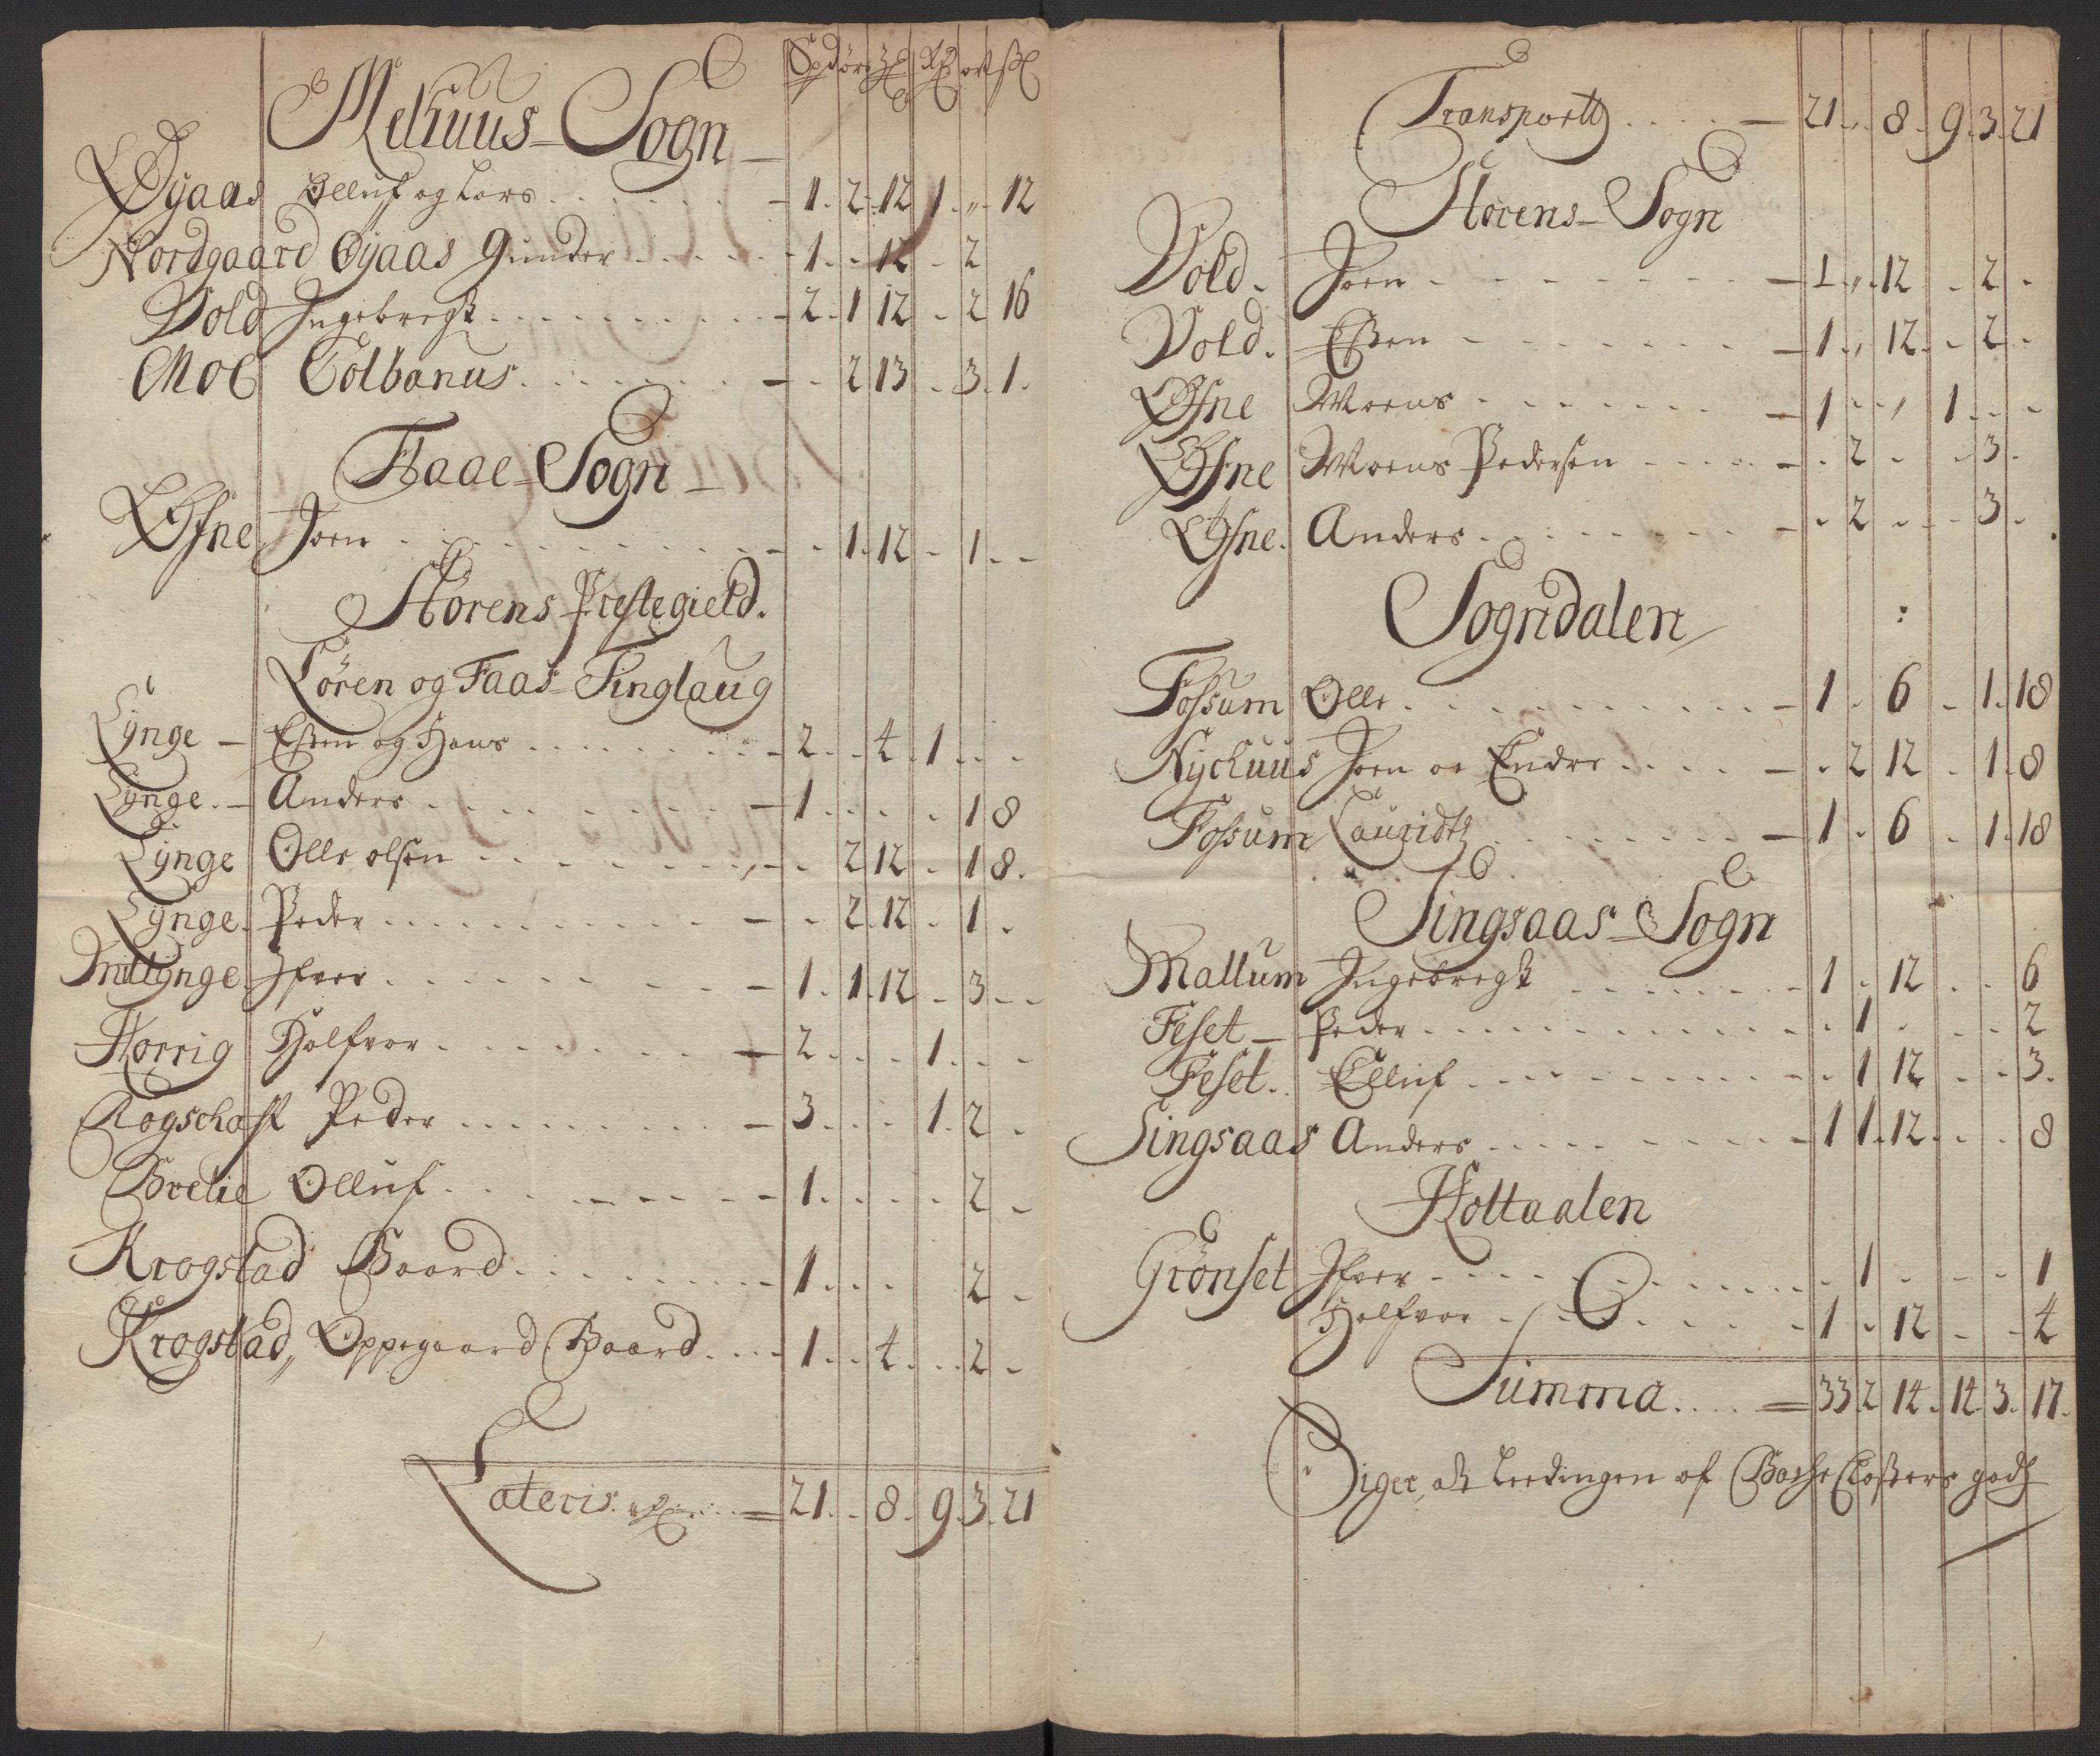 Melhuus Sogn
Øyaas Olluf og Lars 1. 2. 12 1. „ 12
Nordgaard Øyaas Gunder 1. - 12 - 2
Vold Ingebregt 2. 1 12 - 2 16
Moe Colbanus - 2 13 - 3. 1.
Flaae Sogn
Øfne Joen - 1. 12 - 1 - -
Størens Prestegield.
Søren og Faas Tinglaug
Lynge Esten og Hans 2 - 4. 1 - -
Lynge. Anders 1 - - - 1 8
Lynge Olle olsen - 2 12 - 1 8.
Lynge. Peder - 2. 12 - 1 -
Indlynge Ifver 1. 1. 12 - 3 - -
Horrig Halfvor 2 - - 1 - -
Peder 3 - - 1. 2 -
Bretie Olluf 1 - - - 2 -
Krogstad Baard 1 - - 2 -
Krogstad, Oppegaard Baard 1 - 4 - 2 -
Lateris 21. - 8. 9. 3. 21
Transport 21 „ 8. 9. 3. 21
Størens Sogn
Vold. Joen 1 „ 12 - 2 -
Vold. Esten 1 „ 12 - 2 -
Øfne Moens 1 - „ 1 - -
Øfne Moens Pedersen - 2 - - 3.
Øfne. Anders - 2 - - 3 -
Sogndalen
Fossum Olle 1 - 6 - 1. 18
Nyehuus Joen og Endre - 2 12 - 1. 8
Fossum Lauridtz 1 - 6 - 1. 18
Singsaas Sogn
Mallum Ingebregt 1 - 12 - - 6
Feset Peder - 1 - - - 2
Feset. Elluf - 1 12 - - 3.
Singsaas Anders 1 1. 12 - - 8
Holtaalen
Grønset Ifver - 1 - - - 1
Halfvor 1 - 12 - - 4
Summa 33. 2 14. 14. 3. 17.
Leedingen af Closters godz